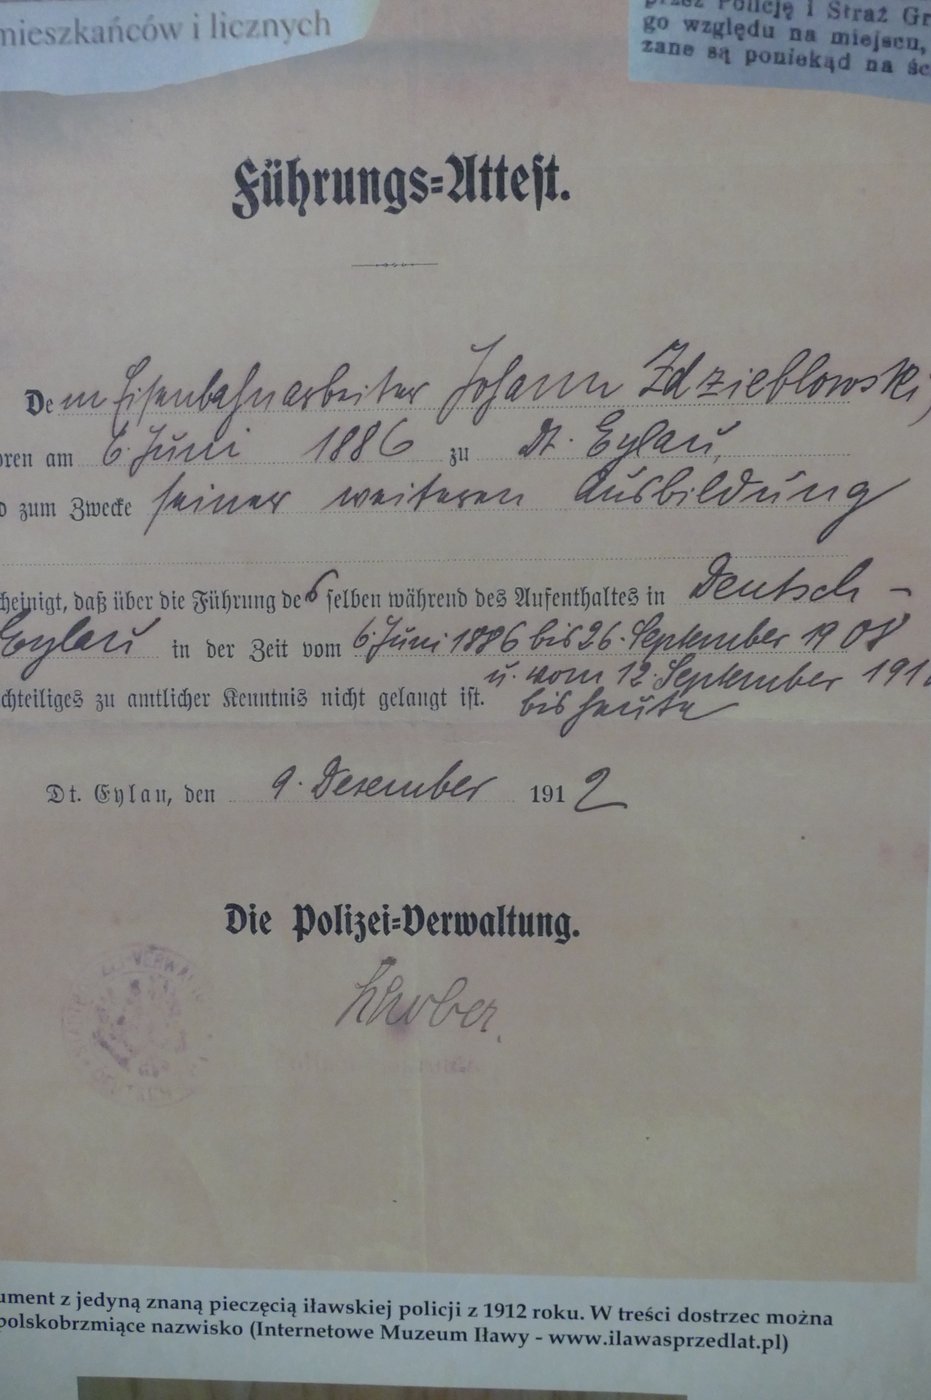 mieszkańców i licznych
przez Policję i Straż Gr
go względu na miejscu,
zane są poniekąd na śc
Führungs-Attest.
Dem Eisenbahnarbeiter Johann Zdzieblowski,
oren am 6. Juni 1886 zu Dt. Eylau,
d zum Zwecke seiner weiteren Ausbildung
cheinigt, daß über die Führung des selben während des Aufenthaltes in Deutsch-
Eylau in der Zeit vom 6. Juni 1886 bis 26. September 1908
u. vom 12. September 191
chteiliges zu amtlicher Kenntnis nicht gelangt ist. bis heute
Dt. Eylau, den 9. Dezember 1912
Die Polizei-Verwaltung.
ument z jedyną znaną pieczęcią iławskiej policji z 1912 roku. W treści dostrzec można
polskobrzmiące nazwisko (Internetowe Muzeum Iławy - www.ilawasprzedlat.pl)